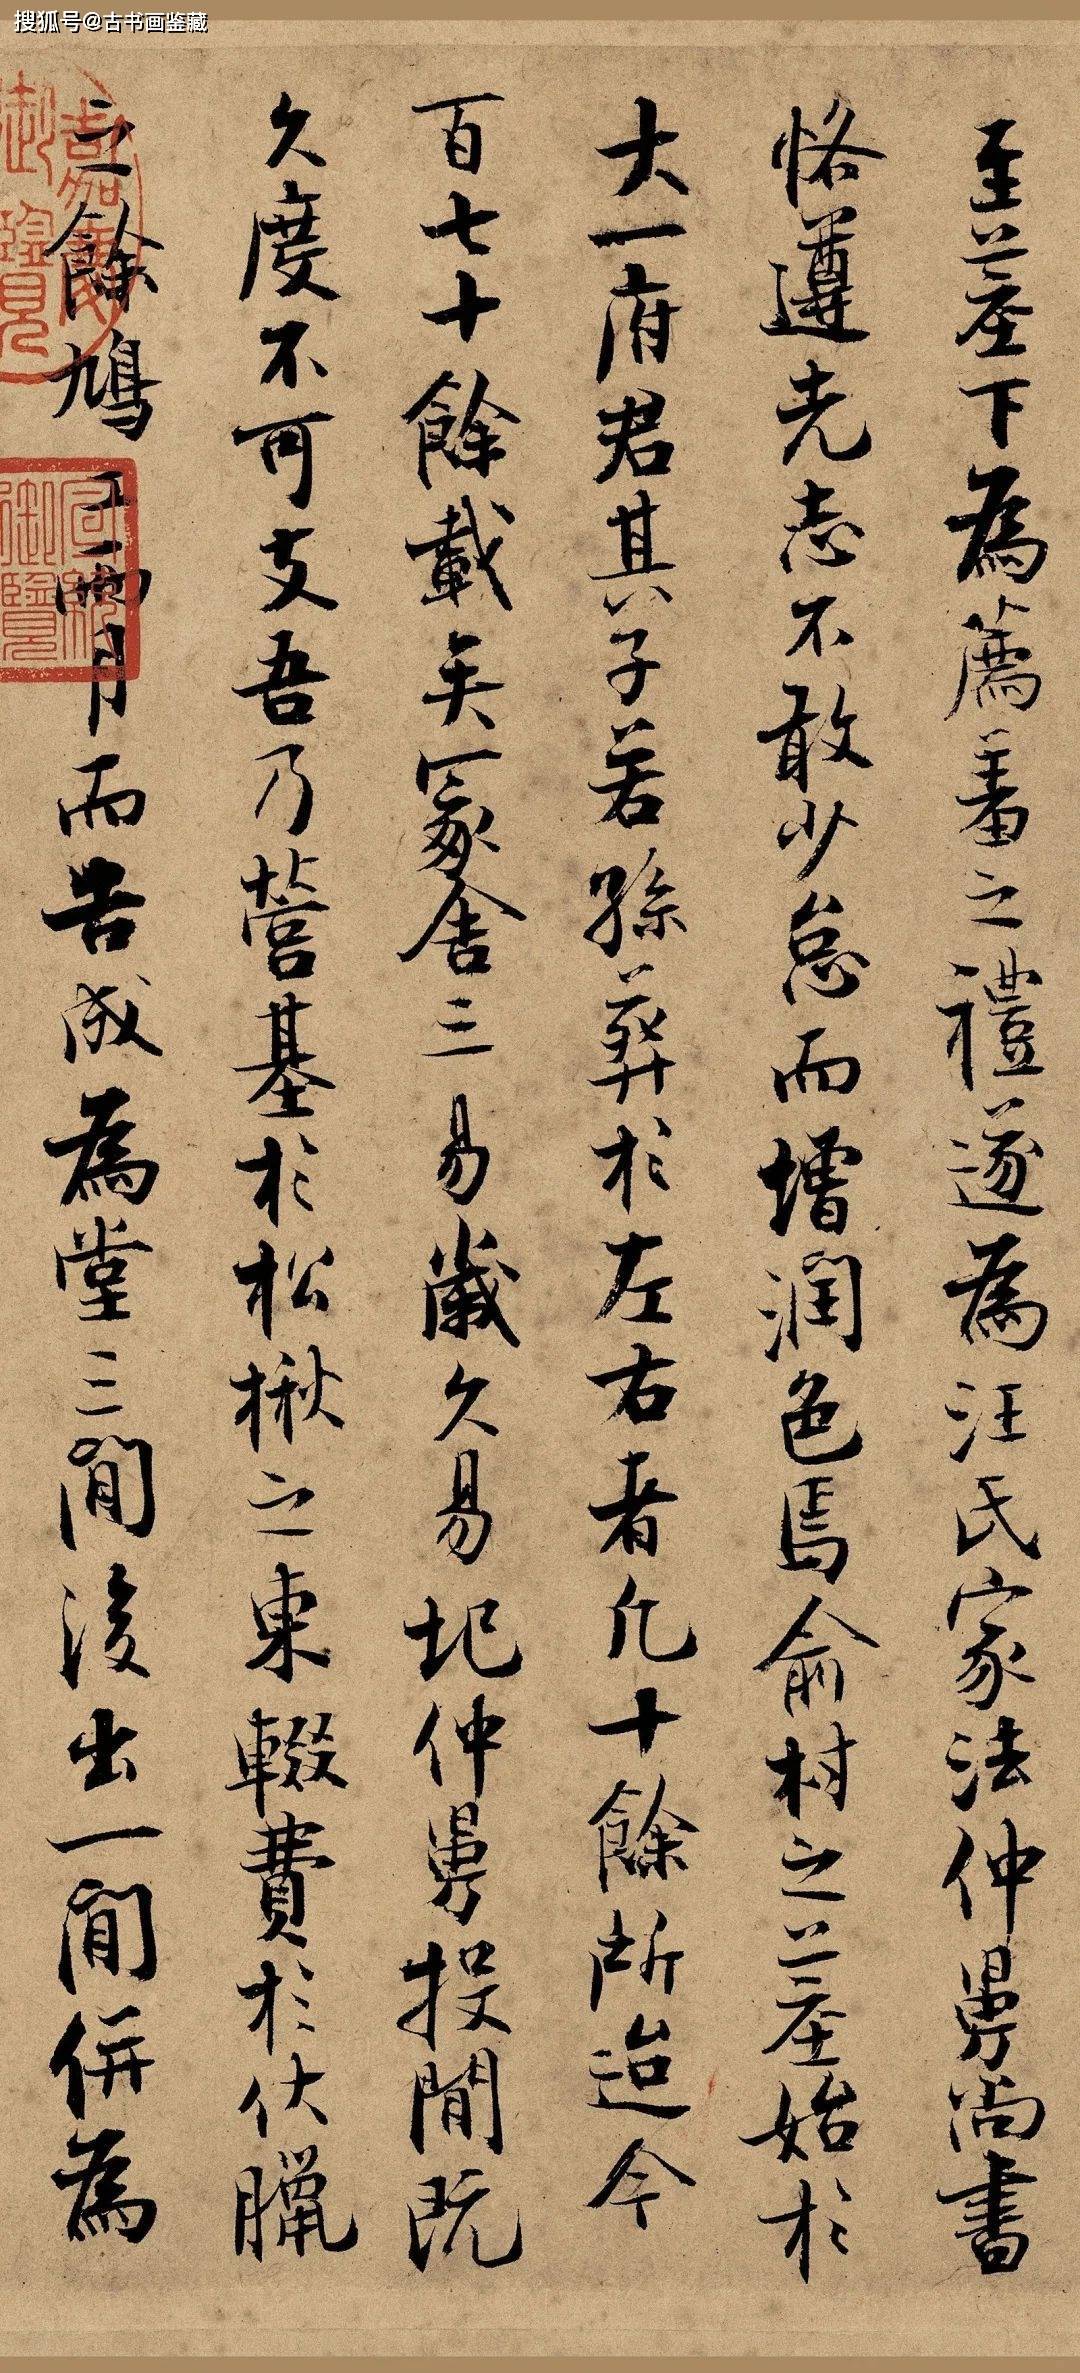 搜狐号@古书画鉴藏
至墓下為薦羞之禮遂為汪氏家法仲舅尚書
恪遵先志不敢少怠而增潤色焉俞村之墓始於
大一府君其子若孫葬於左右者凡十餘所迨今
百七十餘載矣冢舍三易歲久易圮仲舅投閒既
久度不可支吾乃營基於松楸之東輟費於伏臘
之餘鳩工兩月而告成為堂三間後出一間併為
嘉慶御覽
宣統御覽